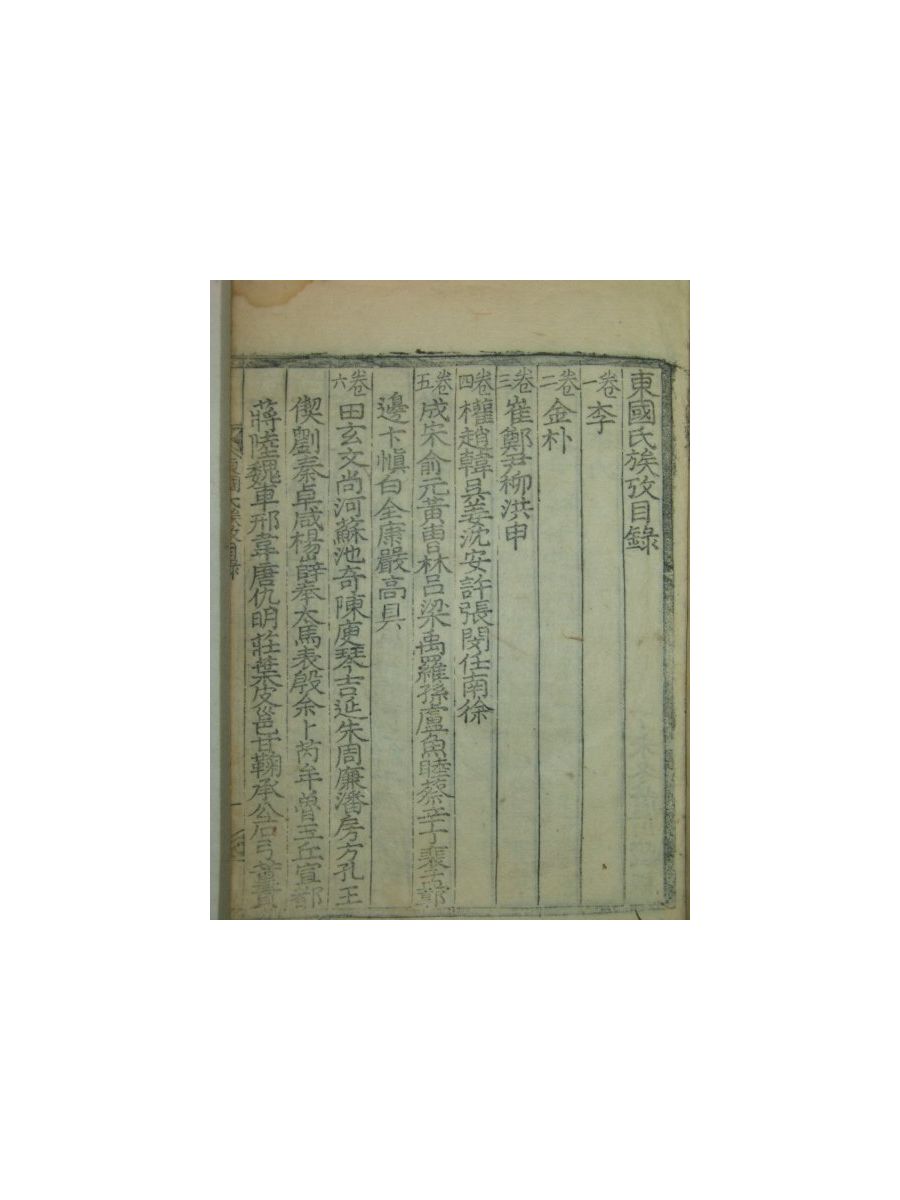 東國氏族攷目錄
卷一 李
卷二 金朴
卷三 崔鄭尹柳洪申
卷四 權趙韓吳姜沈安許張閔任南徐
卷五 成宋俞元黃曺林呂梁禹羅孫盧魚睦蔡辛丁裴
邊卞愼白全康嚴高具
卷六 田玄文尚河蘇池奇陳庾琴吉延朱周廉潘房方孔王
偰劉秦卓咸楊薛奉太馬表殷余卜芮牟曾玉丘宣都
蔣陸魏車邢韋唐仇明莊葉皮邕甘鞠承公石弓
東國氏族攷目錄